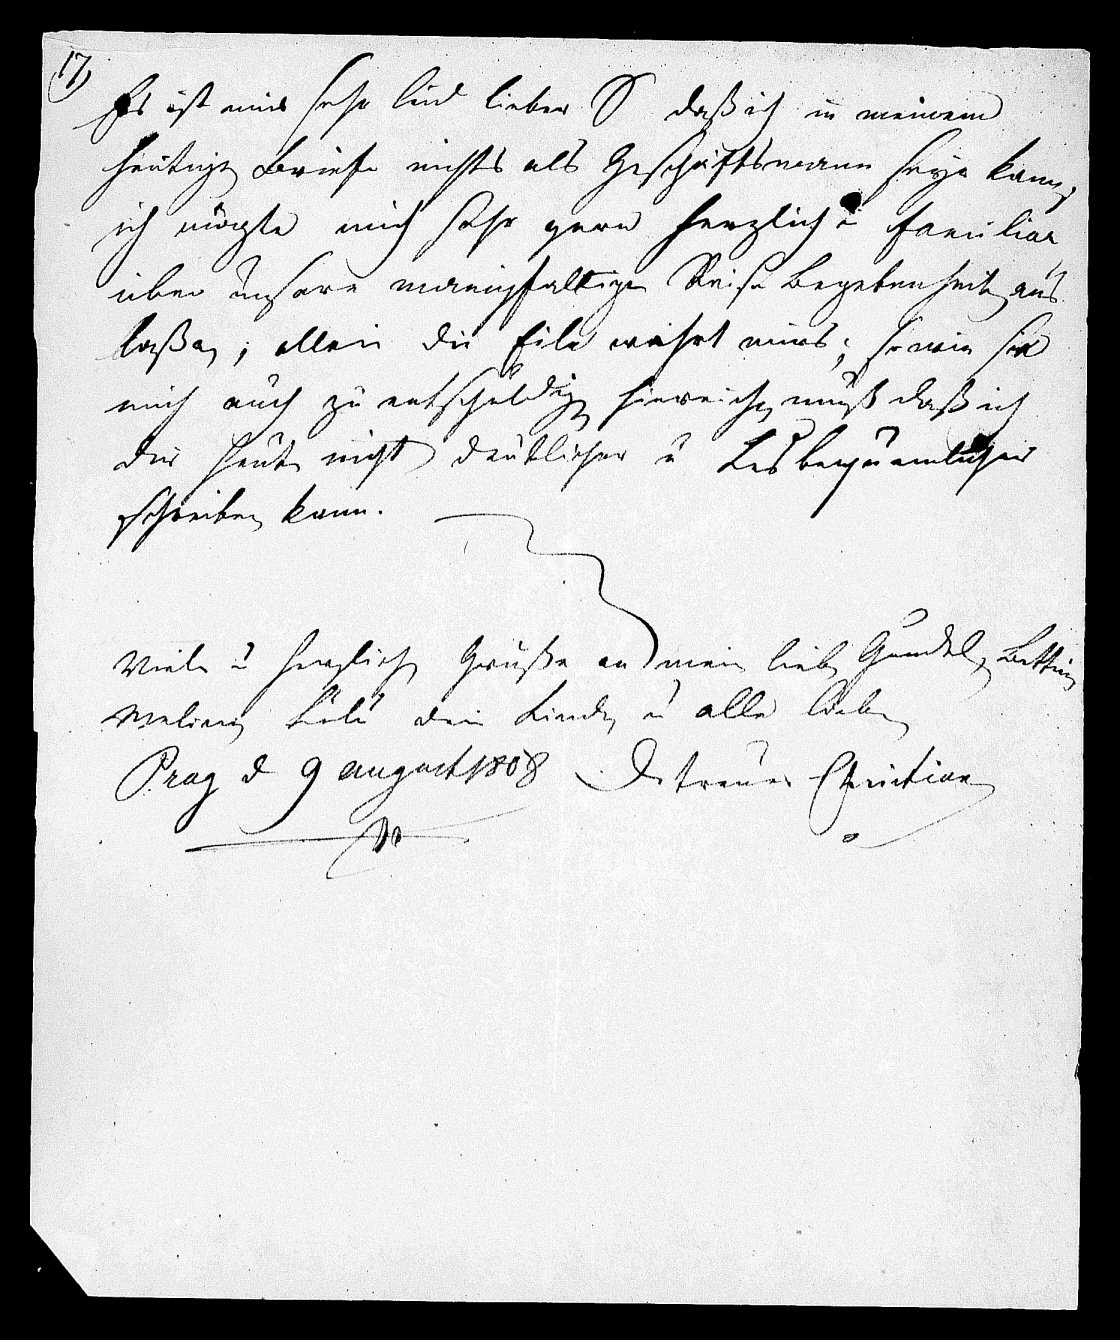 17)
Es ist mir sehr leid lieber S daß ich in meinem
heutigen Briefe nichts als Geschäftsmann seyn kann,
ich mögte mich sehr gern herzlich u familiar
über unsere mannigfaltigen Reise Begebenheiten aus
laßen, allein die Eile wehrt mirs, so wie sie
mich auch zu entschuldigen hinreichen muß daß ich
dir heute nicht deutlicher u Lesbequemlicher
schreiben kann.
Viele u herzliche Grüße an mein liebe Gundel, Bettine,
Meline, Lulu dein Kinder u alle Lieben
Prag d 9 august 1808 Dr treuer Christian